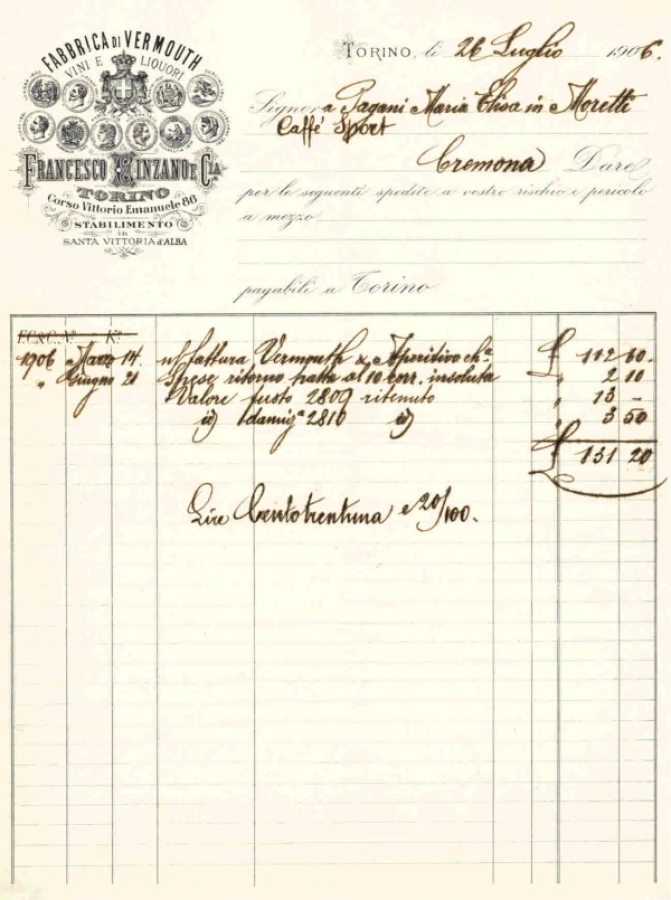 FABBRICA DI VERMOUTH
VINI E LIQUORI
FRANCESCO CINZANO E CIA
TORINO
Corso Vittorio Emanuele 86
STABILIMENTO
in
SANTA VITTORIA d'ALBA
TORINO, li 26 Luglio 1906.
Signora Pagani Maria Elisa in Moretti
Caffé Sport
Cremona Dare
per le seguenti spedite a vostro rischio e pericolo
a mezzo
pagabili a Torino
F.C.& C. N.º K.º
1906 Marzo 14. n/ fattura Vermouth & Aperitivo ch.ª £ 112 60.
" Giugno 21 Spese ritorno tratta al 10 corr. insoluta " 2 10
Valore fusto 2809 ritenuto " 13 -
id damig.ª 2810 id " 3 50
£ 131 20
Lire Centotrentuna e 20/100.